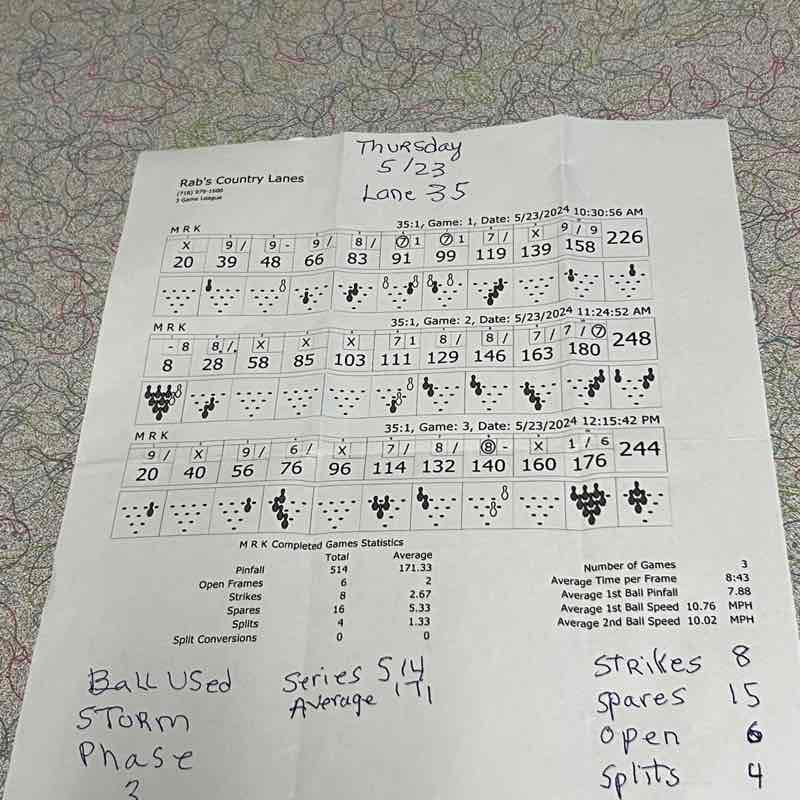 Thursday
5/23
Lane 35
Rab's Country Lanes
(718) 979-1600
3 Game League
M R K 35:1, Game: 1, Date: 5/23/2024 10:30:56 AM
X 9 / 9 - 9 / 8 / ⑦ 1 ⑦ 1 7 / X 9 / 9
20 39 48 66 83 91 99 119 139 158 226
M R K 35:1, Game: 2, Date: 5/23/2024 11:24:52 AM
- 8 8 / X X X 7 1 8 / 8 / 7 / 7 / ⑦
8 28 58 85 103 111 129 146 163 180 248
M R K 35:1, Game: 3, Date: 5/23/2024 12:15:42 PM
9 / X 9 / 6 / X 7 / 8 / ⑧ - X 1 / 6
20 40 56 76 96 114 132 140 160 176 244
M R K Completed Games Statistics
Total Average
Pinfall 514 171.33
Open Frames 6 2
Strikes 8 2.67
Spares 16 5.33
Splits 4 1.33
Split Conversions 0 0
Number of Games 3
Average Time per Frame 8:43
Average 1st Ball Pinfall 7.88
Average 1st Ball Speed 10.76 MPH
Average 2nd Ball Speed 10.02 MPH
Ball Used
STORM
Phase
3
Series 514
Average 171
Strikes 8
Spares 15
Open 6
Splits 4